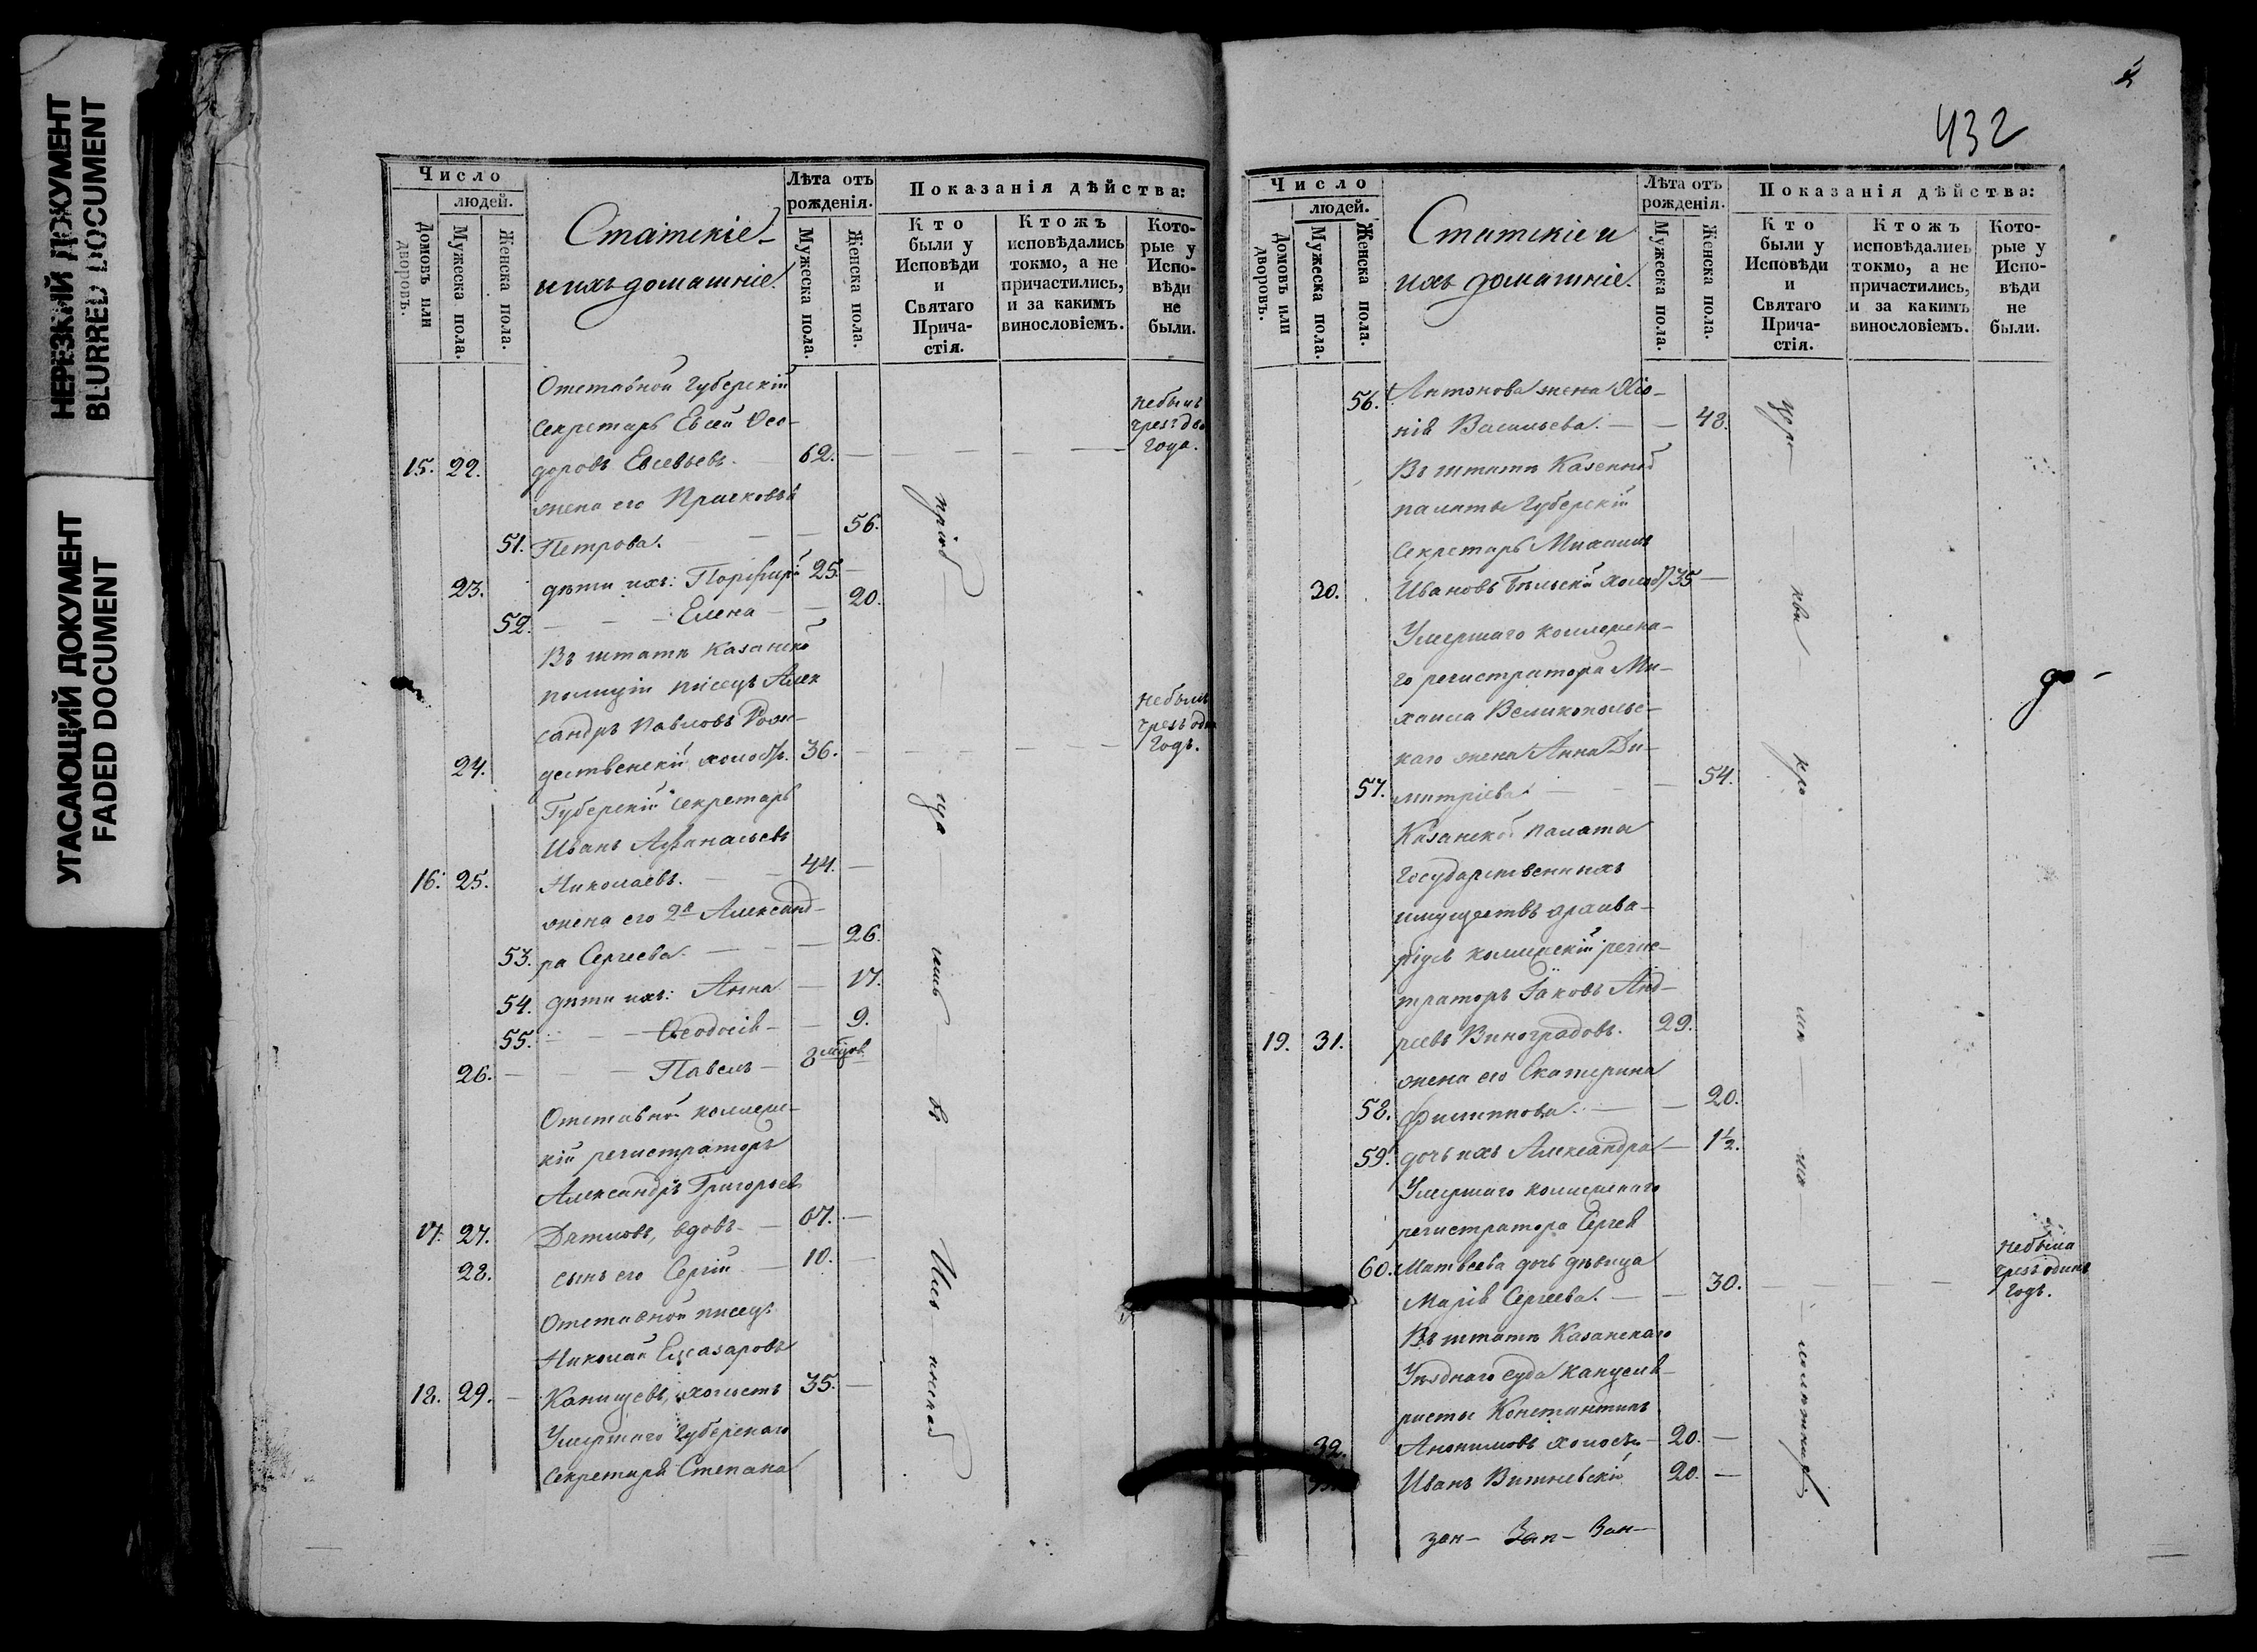 НЕРЕЗКИЙ ДОКУМЕНТ
BLURRED DOCUMENT
УГАСАЮЩИЙ ДОКУМЕНТ
FADED DOCUMENT
Число
людей.
Домовъ или дворовъ.
Мужеска пола.
Женска пола.
Статскіе
и ихъ домашніе.
Лѣта отъ рожденія.
Мужеска пола.
Женска пола.
Показанія дѣйства:
Кто были у Исповѣди и Святаго Прича-стія.
Ктожъ исповѣдались токмо, а не причастились, и за какимъ винословіемъ.
Кото-рые у Испо-вѣди не были.
Отставной Губерскій
Секретарь Евсей Ѳео-
15. 22. доровъ Евсевьевъ. 62. — небылъ чрезъ два года.
жена его Прасковья
51. Петрова. — 56.
23. дѣти ихъ: Порфирій 25. —
52. — Елена — 20.
Въ штатѣ Казанской
полиціи писецъ Алек
сандръ Павловъ Рож-
24. дественскій холостъ. 36. — небылъ чрезъ одинъ годъ.
Губерскій Секретарь
Иванъ Аѳанасьевъ
16. 25. Николаевъ. — 44. —
жена его 2я Александ-
53. ра Сергеева. — 26.
54. дѣти ихъ: Анна — 17.
55. — Ѳеодосія — 9.
26. — Павелъ — 8 мѣсяцов
Отставной коллеж-
кій регистраторъ
Александръ Григорьевъ
17. 27. Дятловъ, вдовъ. — 67. —
28. сынъ его Сергій — 10. —
Отставной писецъ
Николай Елеазаровъ
18. 29. — Канищевъ, холостъ 35. —
Умершаго Губерскаго
Секретаря Степана
приход — ца — — въ — — нской
432
Число
людей.
Домовъ или дворовъ.
Мужеска пола.
Женска пола.
Статскіе и
ихъ домашніе.
Лѣта отъ рожденія.
Мужеска пола.
Женска пола.
Показанія дѣйства:
Кто были у Исповѣди и Святаго Прича-стія.
Ктожъ исповѣдались токмо, а не причастились, и за какимъ винословіемъ.
Кото-рые у Испо-вѣди не были.
56. Антонова жена Хіо-
нія Васильева. — 48.
Въ штатѣ Казенной
палаты Губерскій
Секретарь Михаилъ
30. Ивановъ Бѣльскій холост 35 —
Умершаго коллежска-
го регистратора Ми-
хаила Великопольс-
каго жена Анна Ди-
57. митріева. — 54.
Казанской Палаты
Государственныхъ
имуществъ архива-
ріусъ коллежскій регис-
траторъ Іаковъ Анд-
19. 31. реевъ Виноградовъ. 29.
жена его Екатерина
58. Филиппова. — 20.
59. дочь ихъ Александра — 1 1/2.
Умершаго коллежскаго
регистратора Сергея
60. Матвеева дочь дѣвица
Марія Сергеева. — 30. — небыла чрезъ одинъ годъ.
Въ штатѣ Казанскаго
Уѣзднаго суда канцеля-
ристы Константинъ
32. Анонимовъ холостъ — 20. —
Иванъ Вишневскій 20. —
зан — Зан — Зан —
церкви
до —